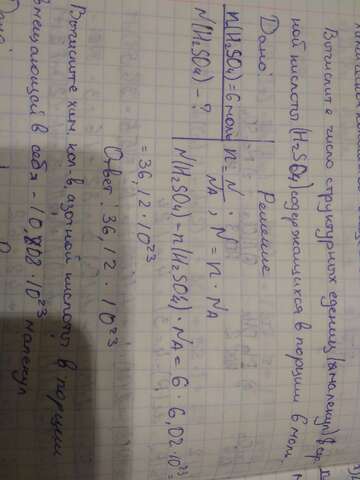 Вычислите число структурных едениц (молекул) в сер
ной кислоты (H₂SO₄) содержащихся в порции 6 моль
Дано:
Решение
n(H₂SO₄) = 6 моль
n = N/NA ; N = n · NA
N(H₂SO₄) - ?
N(H₂SO₄) = n(H₂SO₄) · NA = 6 · 6,02 · 10²³ =
= 36,12 · 10²³
Ответ: 36,12 · 10²³
Вычислите хим. кол в. азотной кислоты в порции
вмещающей в себя - 10,802 · 10²³ малекул